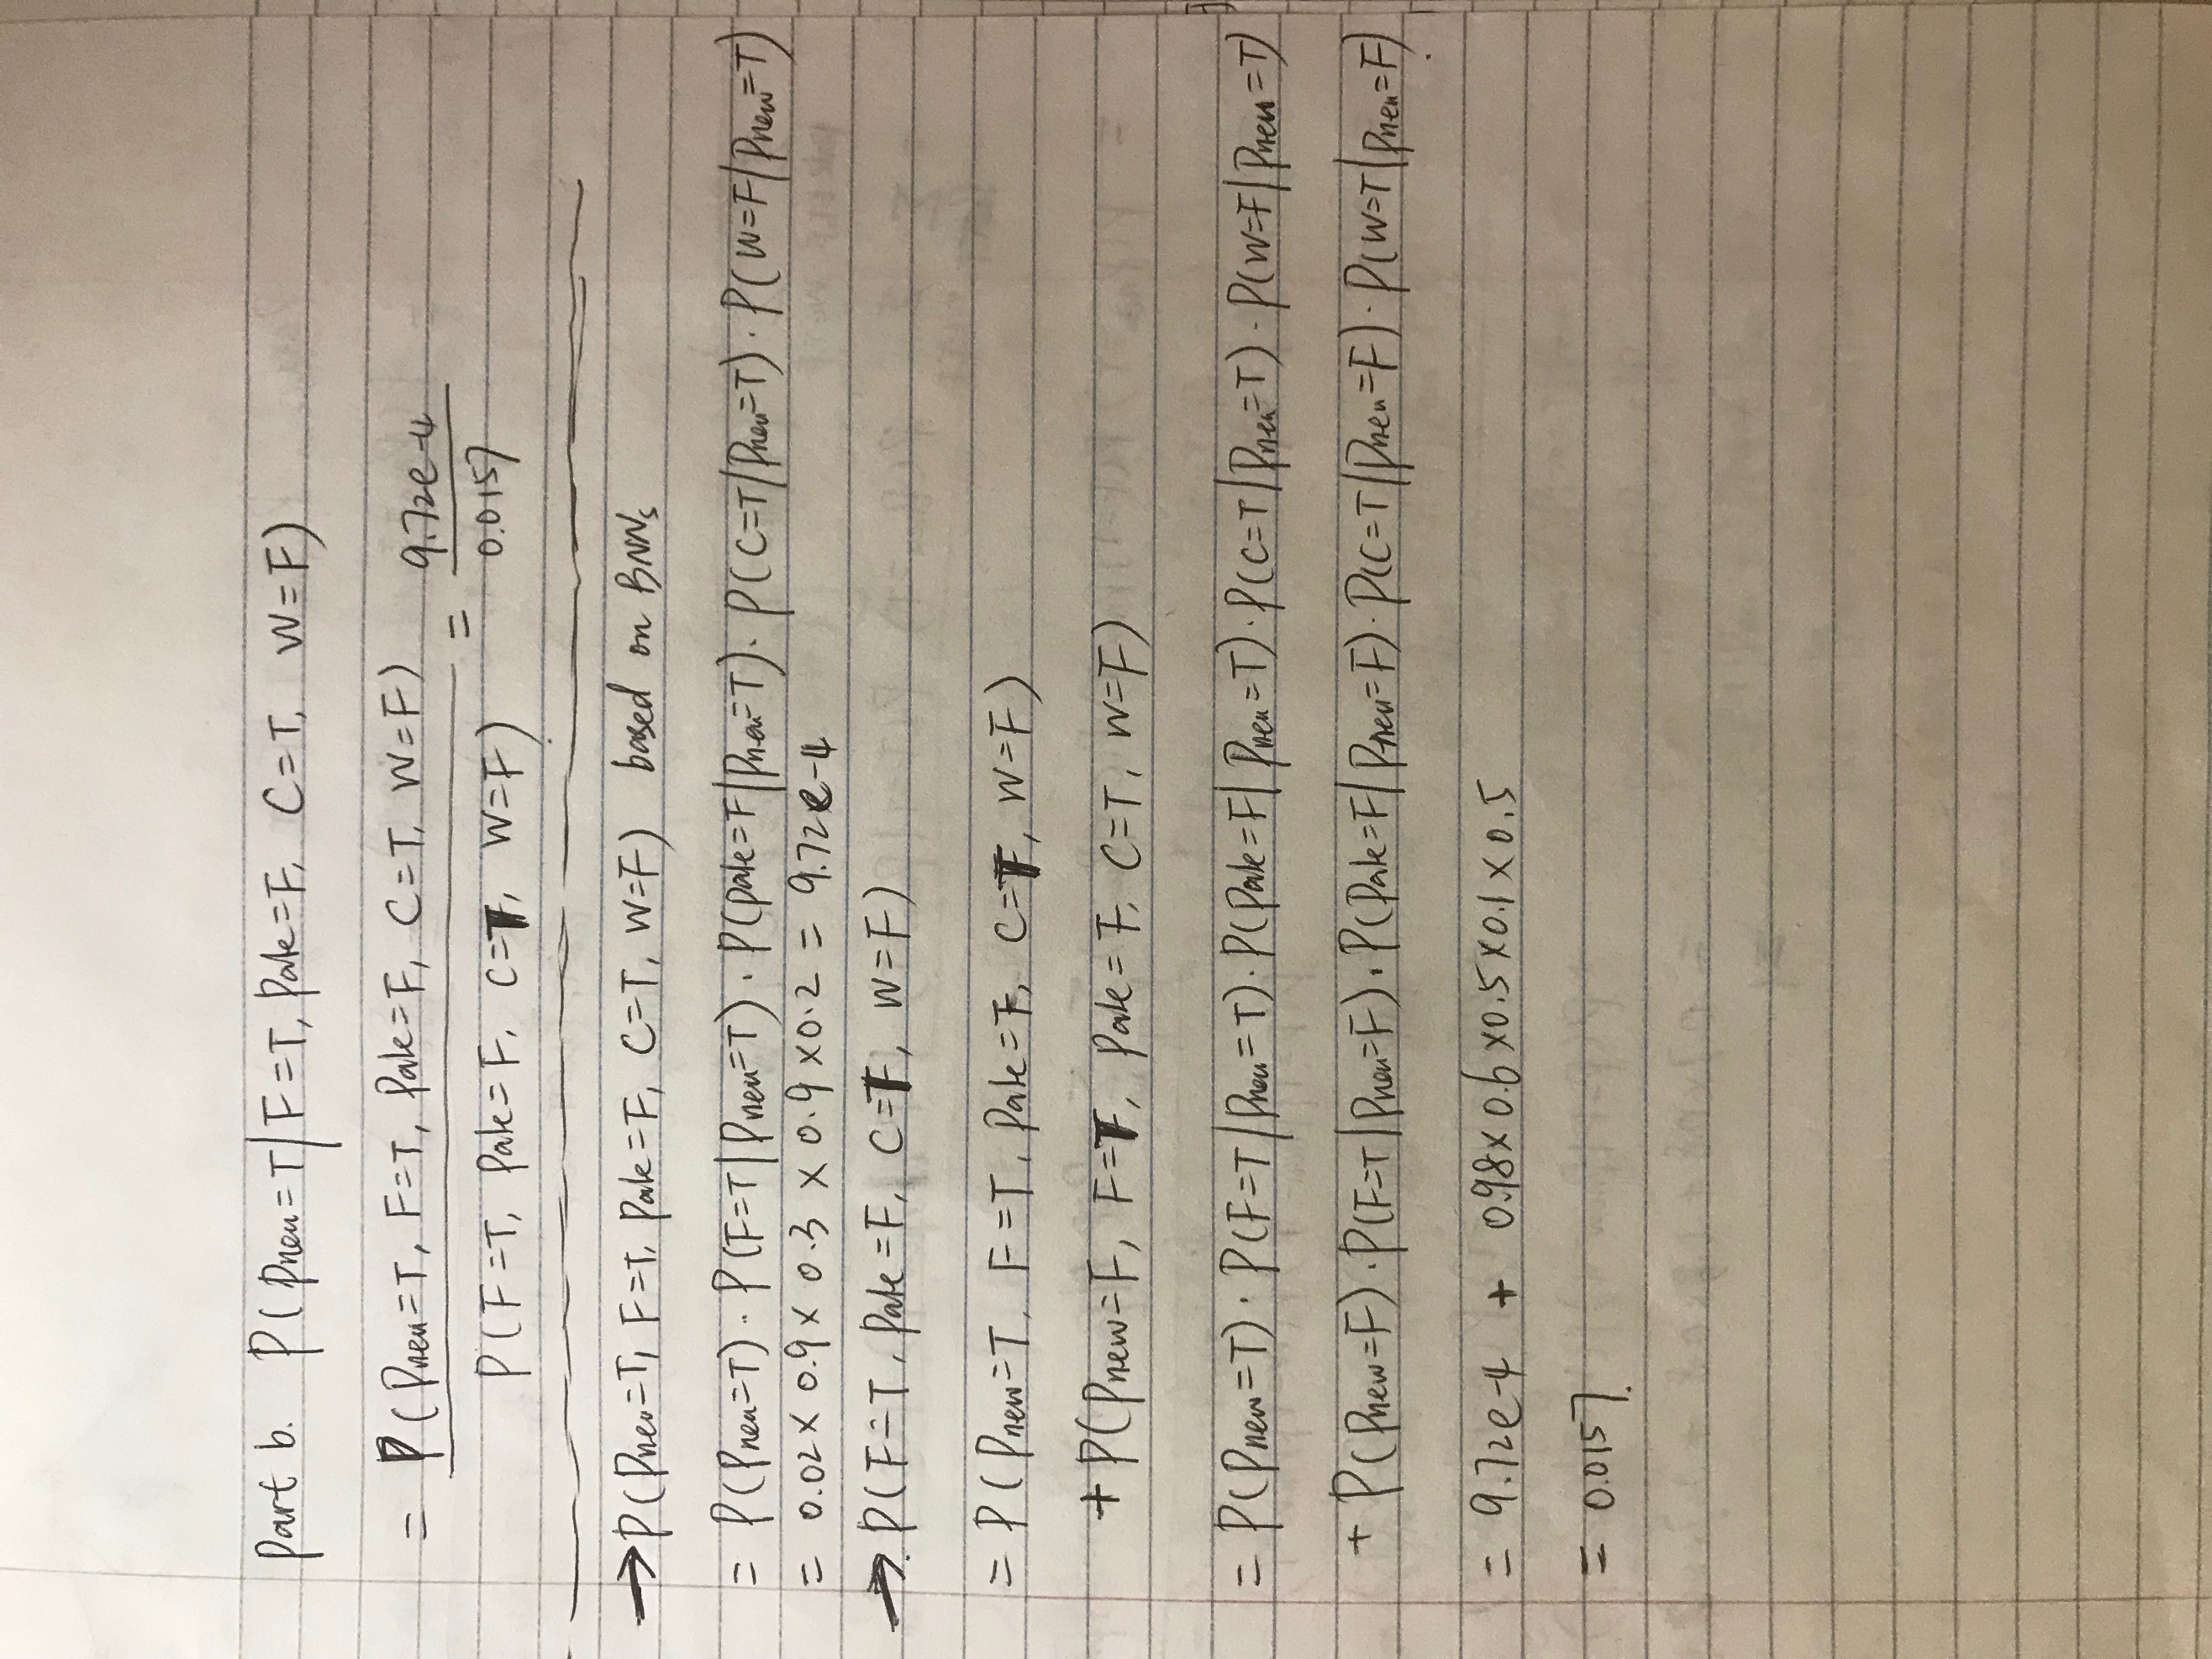 Part b. P(Pneu=T|F=T, Pale=F, C=T, W=F)
= P(Pneu=T, F=T, Pale=F, C=T, W=F) / P(F=T, Pale=F, C=T, W=F) = 9.72e-4 / 0.0157
→ P(Pneu=T, F=T, Pale=F, C=T, W=F) based on BNNs
= P(Pneu=T) · P(F=T|Pneu=T) · P(Pale=F|Pneu=T) · P(C=T|Pneu=T) · P(W=F|Pneu=T)
= 0.02 x 0.9 x 0.3 x 0.9 x 0.2 = 9.72e-4
→ P(F=T, Pale=F, C=T, W=F)
= P(Pneu=T, F=T, Pale=F, C=T, W=F)
+ P(Pneu=F, F=T, Pale=F, C=T, W=F)
= P(Pneu=T) · P(F=T|Pneu=T) · P(Pale=F|Pneu=T) · P(C=T|Pneu=T) · P(W=F|Pneu=T)
+ P(Pneu=F) · P(F=T|Pneu=F) · P(Pale=F|Pneu=F) · P(C=T|Pneu=F) · P(W=T|Pneu=F)
= 9.72e-4 + 0.98 x 0.6 x 0.5 x 0.1 x 0.5
= 0.0157.